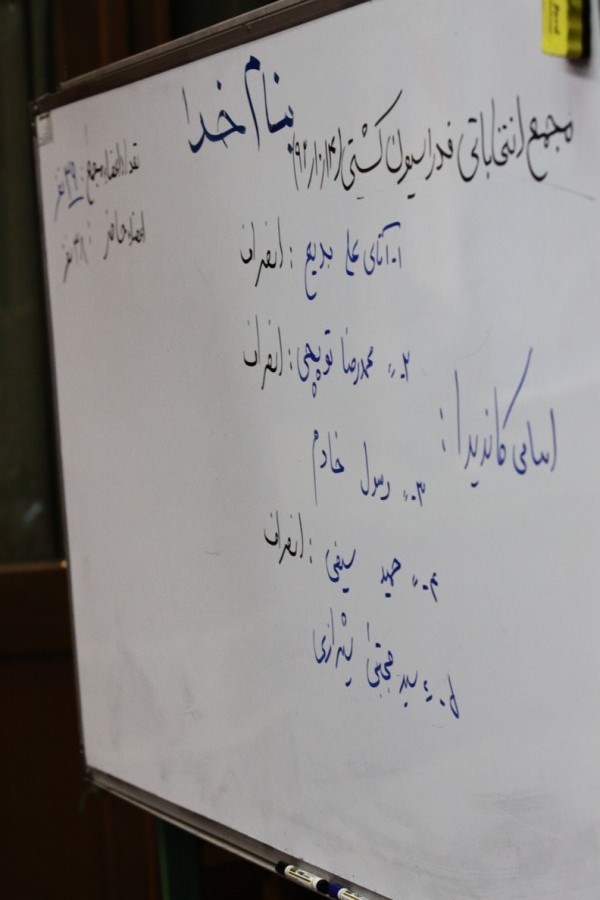 بنام خدا
مجمع انتخاباتی فدراسیون کشتی (۹۲/۱۰/۱۴)
تعداد اعضاء مجمع : ۳۹ نفر
اعضاء حاضر : ۳۸ نفر
اسامی کاندیدا :
۱- آقای علی بدیع : انصراف
۲-〃 محمدرضا توپچی : انصراف
۳- 〃 رسول خادم
۴- 〃 حمید سیفی : انصراف
۵- 〃 سید مجتبی شیرازی